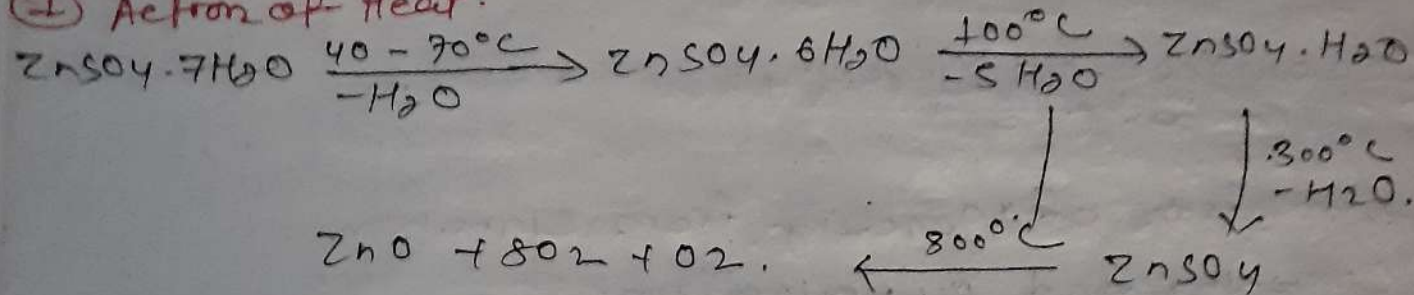 (1) Action of Heat.
ZnSO4.7H2O 40-70°C → ZnSO4.6H2O 100°C → ZnSO4.H2O
-H2O -5H2O
300°C
-H2O.
ZnO + SO2 + O2. ← 800°C ZnSO4